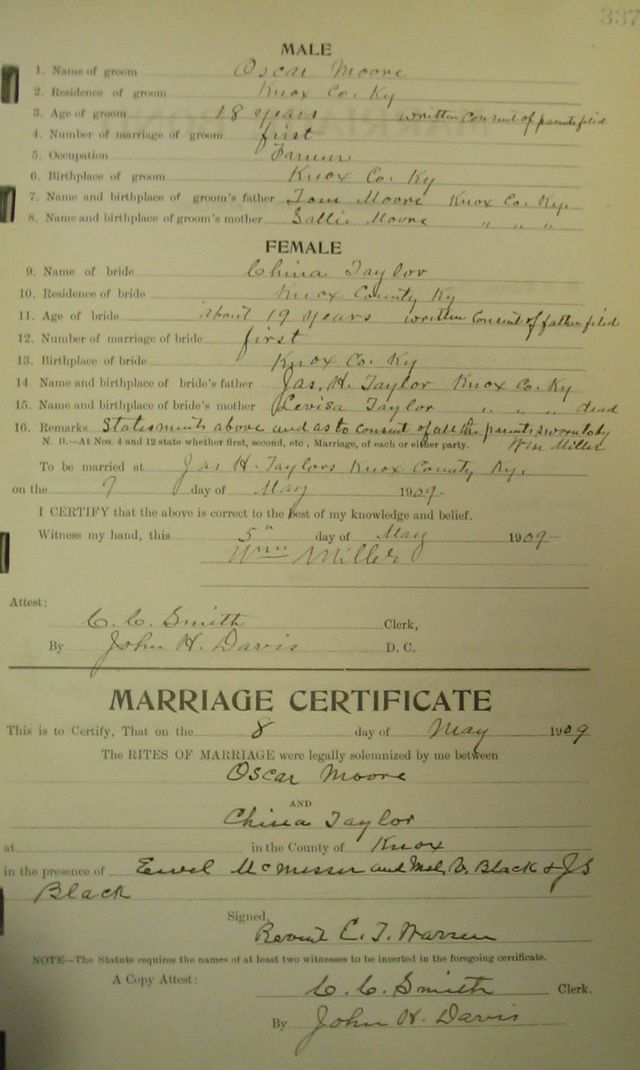 337
MALE
1. Name of groom Oscar Moore
2. Residence of groom Knox Co. Ky
3. Age of groom 18 years written consent of parents filed
4. Number of marriage of groom first
5. Occupation Farmer
6. Birthplace of groom Knox Co. Ky
7. Name and birthplace of groom's father Tom Moore Knox Co. Ky.
8. Name and birthplace of groom's mother Sallie Moore " " "
FEMALE
9. Name of bride China Taylor
10. Residence of bride Knox County Ky
11. Age of bride About 19 years written consent of father filed
12. Number of marriage of bride first
13. Birthplace of bride Knox Co. Ky
14 Name and birthplace of bride's father Jas. H. Taylor Knox Co. Ky
15. Name and birthplace of bride's mother Levisa Taylor " " " dead
16. Remarks Statements above and as to consent of all the parents sworn to by
N. B.—At Nos. 4 and 12 state whether first, second, etc., Marriage, of each or either party. Wm Miller
To be married at Jas H. Taylors Knox County Ky.
on the 9 day of May 1909.
I CERTIFY that the above is correct to the best of my knowledge and belief.
Witness my hand, this 5" day of May 1909
Wm Miller
Attest:
C. C. Smith Clerk,
By John H. Davis D. C.
MARRIAGE CERTIFICATE
This is to Certify, That on the 8 day of May 1909
The RITES OF MARRIAGE were legally solemnized by me between
Oscar Moore
AND
China Taylor
at in the County of Knox
in the presence of and Black & J S
Black
Signed,
C. T. Warren
NOTE—The Statute requires the names of at least two witnesses to be inserted in the foregoing certificate.
A Copy Attest: C. C. Smith Clerk.
By John H. Davis